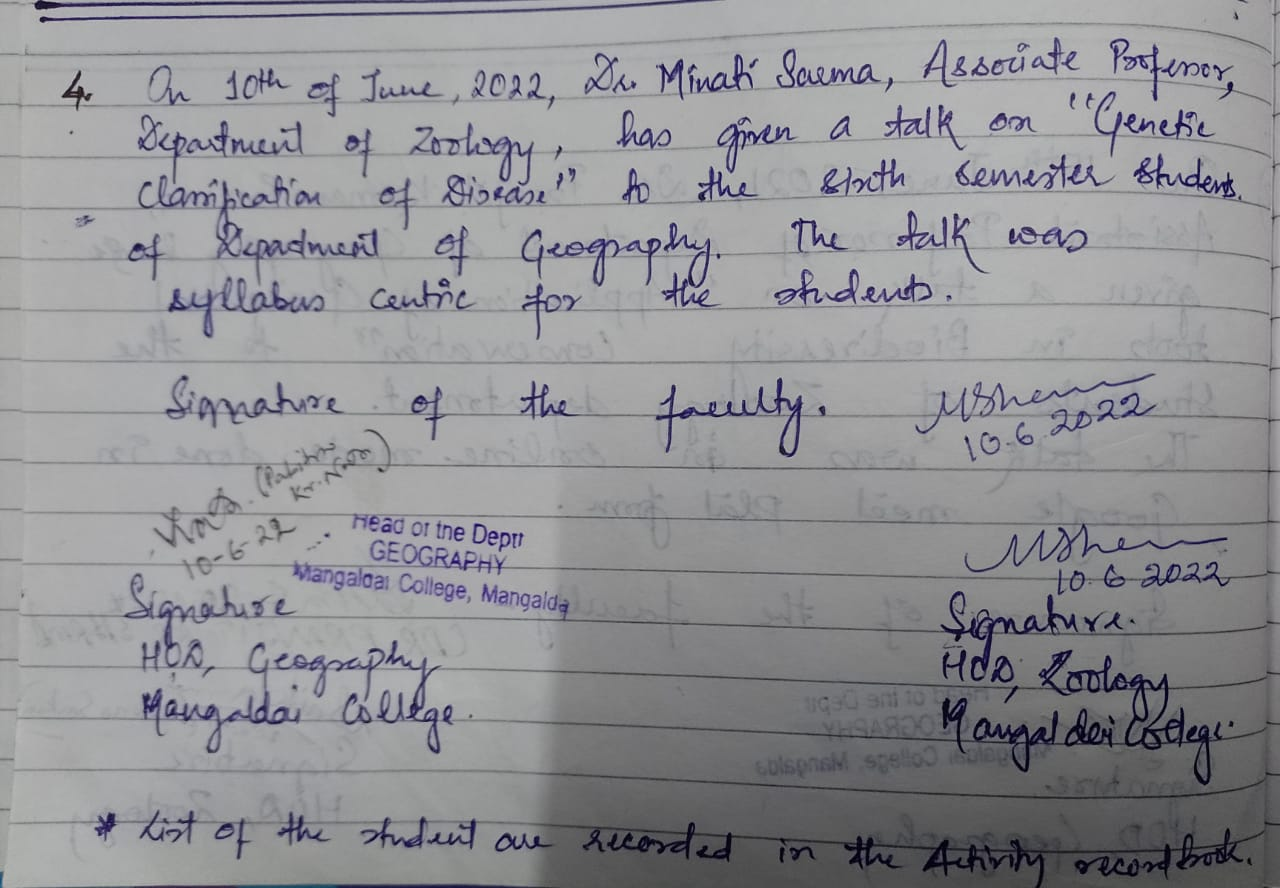 4. On 10th of June, 2022, Dr. Minati Sarma, Associate Professor,
Department of Zoology, has given a talk on "Genetic
Classification of Disease" to the sixth semester students.
of Department of Geography. The talk was
syllabus centric for the students.
Signature of the faculty.
10.6.2022
Kr. Nath)
10-6-22
Head of the Deptt
GEOGRAPHY
Mangaldai College, Mangalda
Signature
HOD, Geography
Mangaldai College.
10.6.2022
Signature.
HOD, Zoology
Mangaldai College.
* List of the student are recorded in the Activity record book.